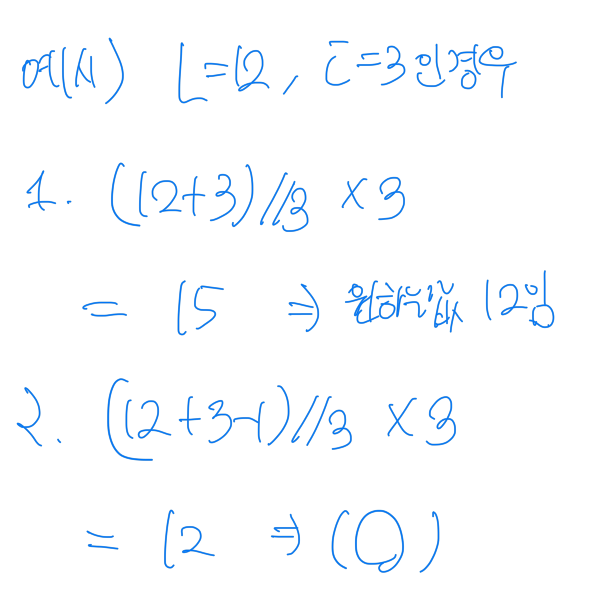 예시) L=12, i=3인경우
1. (12+3)//3 × 3
= 15 ⇒ 원하는값 12임
2. (12+3-1)//3 × 3
= 12 ⇒ (O)